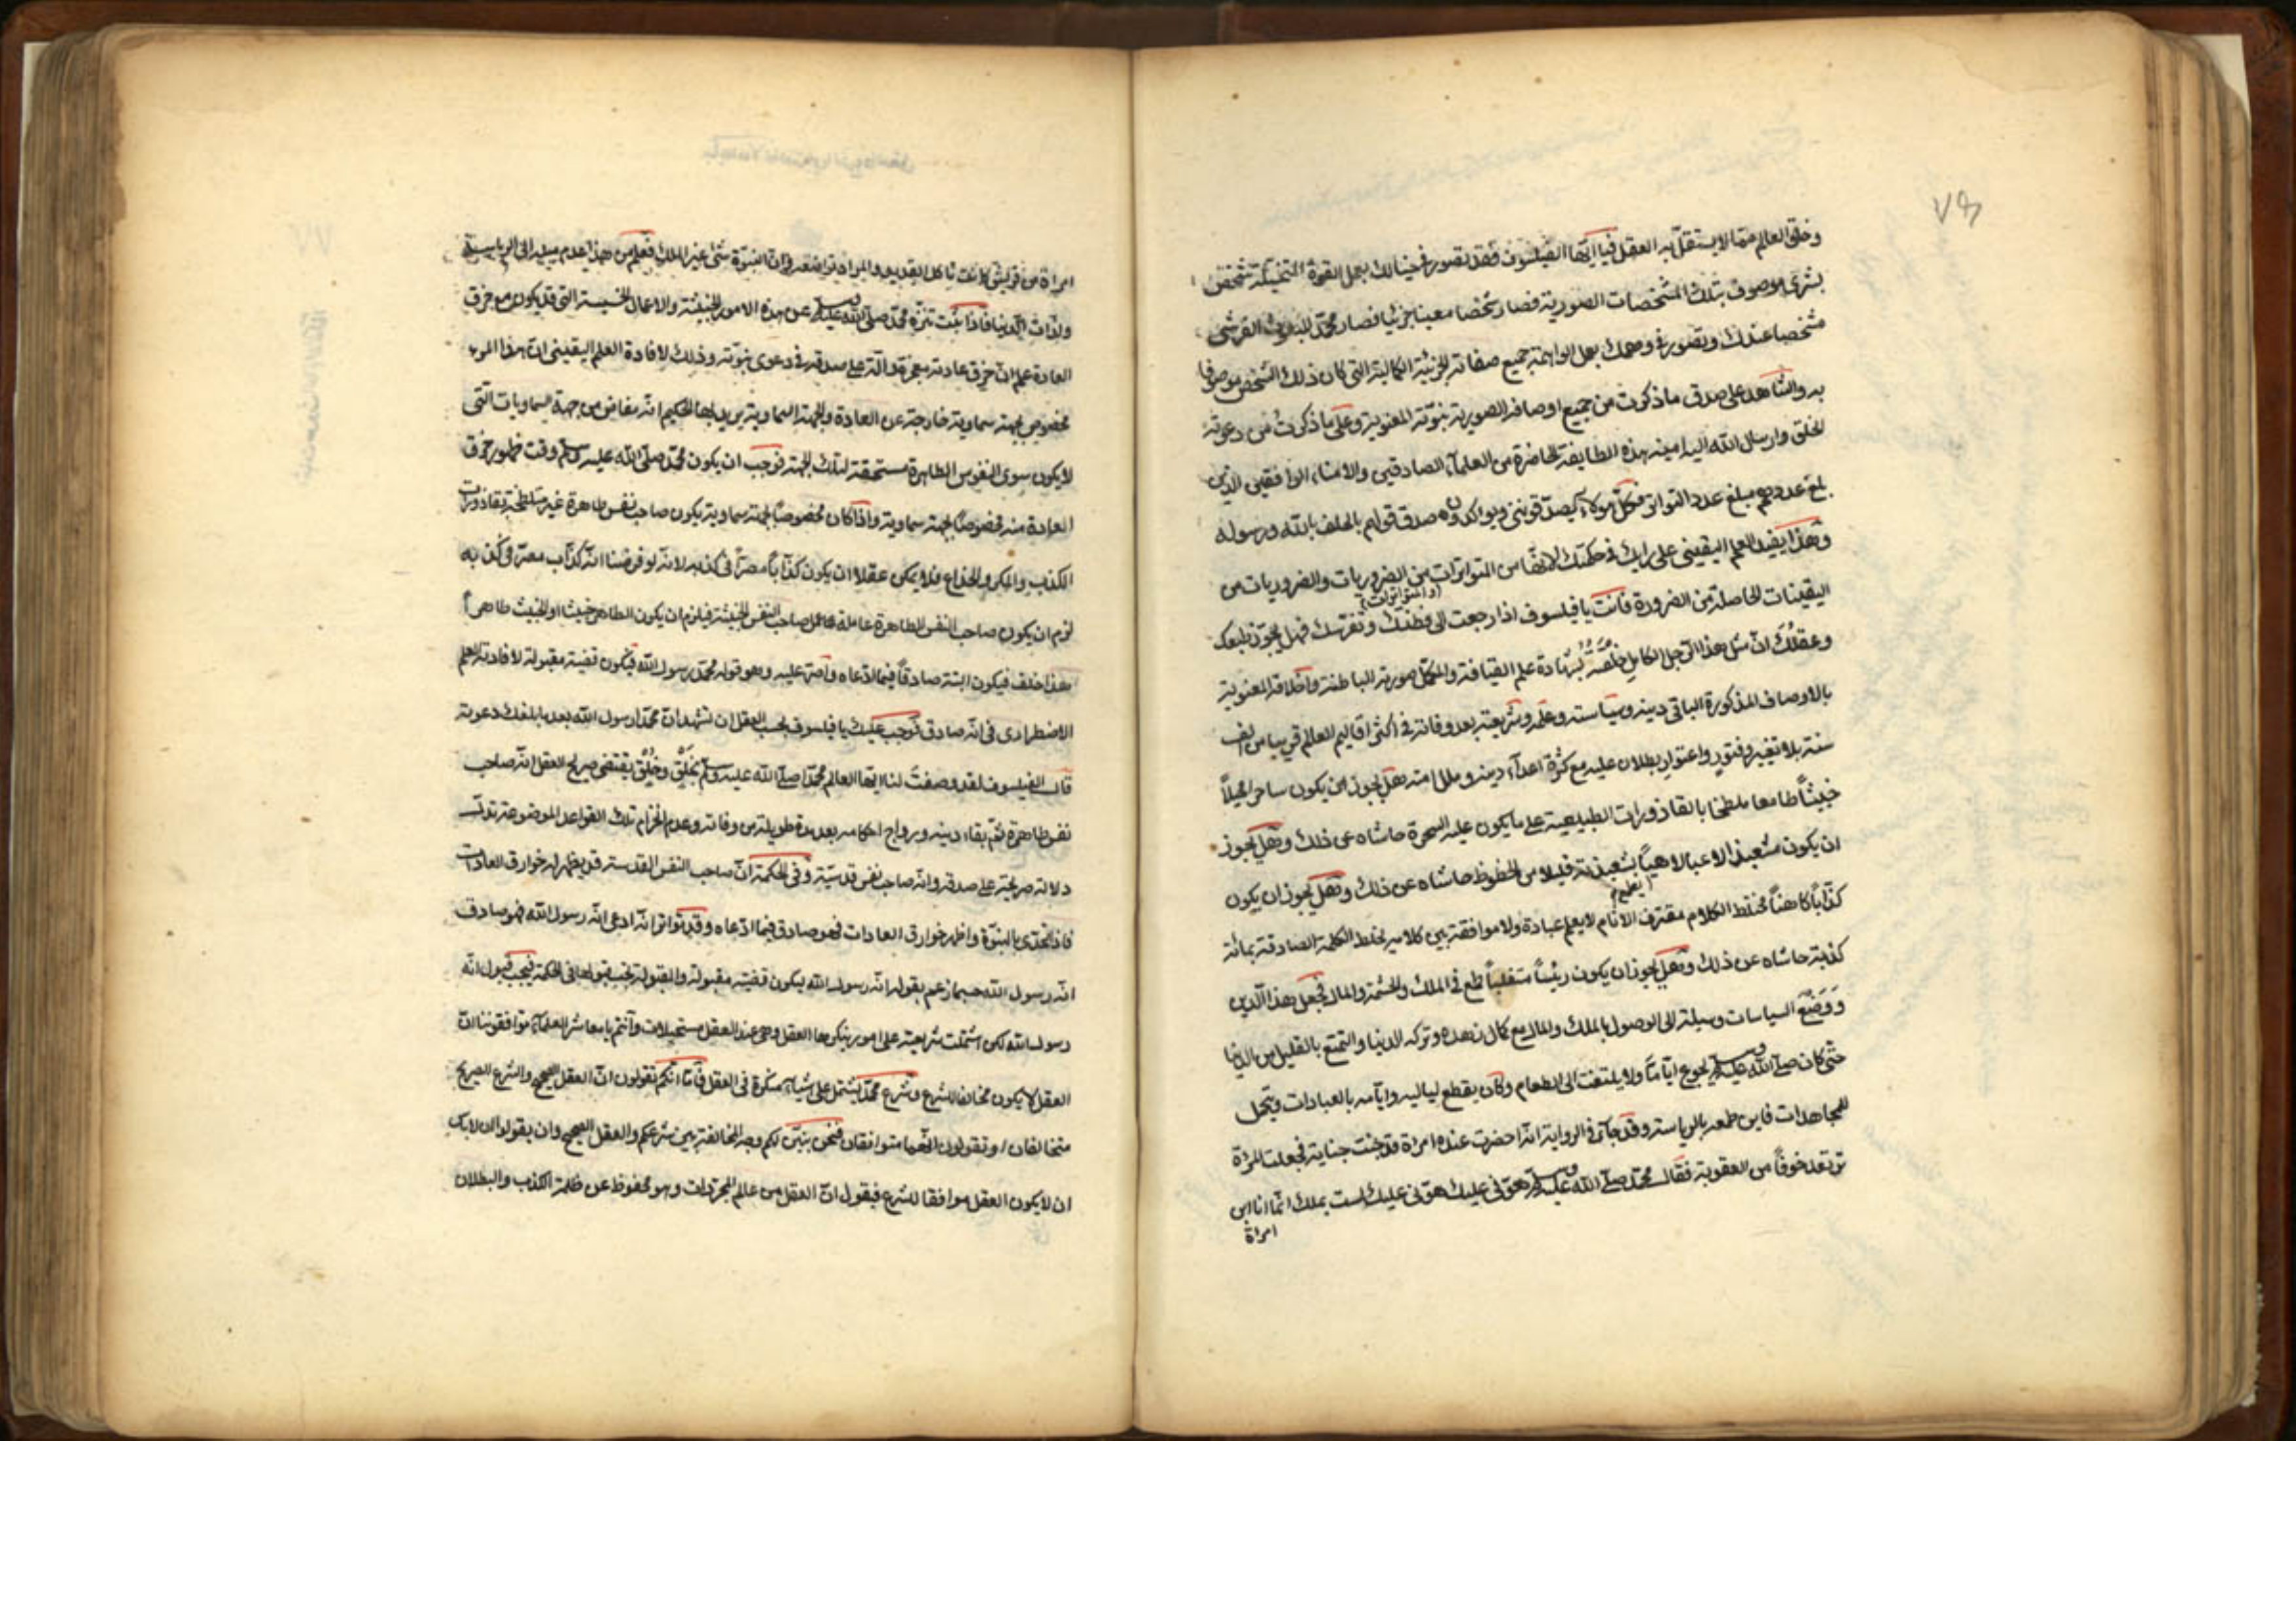 ٧٣
وخلق العالم ممّا لا يستقلّ به العقل فيا ايّها الفيلسوف فقد تصوّر في خيالك بعمل القوة المتخيّلة شخص
بشرى موصوف بتلك المشخصات الصورية فصار شخصا معينا جزئيا فصار محمّد القرشى
مشخصا عندك وتصور في وهمك بعمل الواهمة جميع صفاته الجزئية الكمالية التي كان ذلك الشخص موصوفا
به والشاهد على صدق ما ذكرت من جميع اوصافه الصورية بنبوّته المعنوية وعلى ما ذكرت من دعوته
الخلق وارسال الله اليه امينه هذه الطايفة الحاضرة من العلماء الصادقين والامناء الواقفين الذين
بلغ عددهم مبلغ عدد التواتر فكلّ هؤلاء يصدّقونني ويؤاكدون صدق قولهم بالحلف بالله ورسوله
وهذا يفيد العلم اليقينى على رايك في حكمتك لانّها من المتواترات من الضروريات والضروريات من
(والمتواترات)
اليقينات الحاصلة من الضرورة فانت يا فيلسوف اذا رجعت الى فطنتك وتفرّسك فهل يجوّز طبعك
وعقلك انّ مثل هذا الرّجل الكامل خلقته بشهادة علم القيافة والمكمّل صورته الباطنة واخلاقه المعنوية
بالاوصاف المذكورة الباقى دينه وسياسته وعلمه وشريعته بعد وفاته في اكثر اقاليم العالم قريبا من الف
سنة بلا تغيير وفتور واعتوار بطلان عليه مع كثرة اعداء دينه وملل امته هل يجوز ان يكون ساحرا محيلاً
خبيثاً طامعا ملطخا بالقاذورات الطبيعية على ما يكون عليه السحرة حاشاه عن ذلك وهل يجوز
ان يكون مشعبذا لاعبا لاهياً بشعبذته قليلا من الحظوظ حاشاه عن ذلك وهل يجوز ان يكون
كذّاباً كاهناً مختلط الكلام مقترف الاثام لا يعلم عبادة ولا موافقة بين كلامه يخلط الكلمة الصادقة بمائة
كذبة حاشاه عن ذلك وهل يجوز ان يكون رئيساً متغلباً طمع في الملك والحشمة والمال فجعل هذا الدين
ووضع السياسات وسيلة الى الوصول بالملك والمال مع كمال زهده وتركه الدنيا والتمتع بالقليل من الدنيا
حتّى كان صلّى الله عليه وسلم يجوع ايّاماً ولا يلتفت الى الطعام وكان يقطع لياليه وايّامه بالعبادات ويتحمل
المجاهدات فاين طمعه بالرياسة وقد جاء في الرواية انّه احضرت عنده امراة قد جنت جناية فجعلت المراة
ترتعد خوفاً من العقوبة فقال محمّد صلّى الله عليه وسلم هوّنى عليك هوّنى عليك لست بملك انّما انا ابن
امراة
امراة من قريش كانت تاكل القديد والمراد تواضعه في انّ النبوّة شئ غير الملك فعلم من هذا عدم ميله الى الرياسة
ولذّات الدنيا فاذا ثبت تنزّه محمّد صلّى الله عليه وسلم عن هذه الامور الخبيثة والاعمال الخسيسة التي قد يكون مع خرق
العادة علم انّ خرق عادته معجزة دالّة على صدقه في دعوى نبوّته وذلك لافادة العلم اليقينى انّ هذا المرء
مخصوص بجهة سماوية خارجة عن العادة والجهة السماوية يريد بها الحكيم انّه مفاض من جهة السماويات التي
لا يكون سوى النفوس الطاهرة مستحقة لتلك الجهة فوجب ان يكون محمّد صلّى الله عليه وسلّم وقت ظهور خرق
العادة منه مخصوصاً بجهة سماوية واذا كان مخصوصاً بجهة سماوية يكون صاحب نفس طاهرة غير متلطخة بقاذورات
الكذب والمكر والخداع فلا يمكن عقلا ان يكون كذّاباً مصرّاً في كذبه لانّه لو فرضنا انّه كذّاب مصرّ في كذبه
لزم ان يكون صاحب النفس الطاهرة عاملة عمل صاحب النفس الخبيثة فيلزم ان يكون الطاهر خبيثا او الخبيث طاهراً
هذا خلف فيكون البتة صادقاً فيما ادّعاه واصرّ عليه وهو قوله محمّد رسول الله فيكون قضية مقبولة لافادته العلم
الاضطرارى في انّه صادق فوجب عليك يا فيلسوف بحسب العقل ان تشهد انّ محمّدا رسول الله بعد ما بلغك دعوته
قال الفيلسوف لقد وصفت لنا ايّها العالم محمّدا صلّى الله عليه وسلّم بخَلْق وخُلْق يقتضى صريح العقل انّه صاحب
نفس طاهرة ثمّ بقاء دينه ورواج احكامه بعد مدة طويلة من وفاته وعدم انخرام تلك القواعد الموضوعة تدلّ
دلالة صريحة على صدقه وانّه صاحب نفس قدسيّة وفي الحكمة انّ صاحب النفس القدسة قد يظهر له خوارق العادات
فاذا تحدّى بالنبوّة واظهر خوارق العادات فهو صادق فيما ادّعاه وقد تواتر انّه ادعى انّه رسول الله فهو صادق
انّه رسول الله حسبما زعم بقوله انّه رسول الله ليكون قضيّة مقبولة والمقبولة يجب قبولها في الحكمة فيجب قبول انّه
رسول الله لكن اشتملت شريعته على امور ينكرها العقل وهى عند العقل مستحيلات وانتم يا معاشر العلماء موافقوننا انّ
العقل لا يكون مخالفا للشرع وشرع محمّد يشتمل على اشياء منكرة في العقل فامّا انّكم تقولون انّ العقل الصحيح والشرع الصريح
متخالفان او تقولون انّهما متوافقان فنحن نبيّن لكم وجه المخالفة بين شرعكم والعقل الصحيح وان يقولوا
ان لا يكون العقل موافقا للشرع فيقول انّ العقل من عالم المجردات وهو محفوظ عن ظلمة الكذب والبطلان